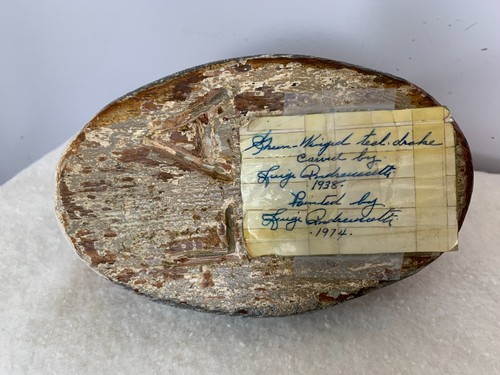 Green-Winged teal-drake
carved by
Luigi Andreuccetti
1938-
Painted by
Luigi Andreuccetti
-1974-